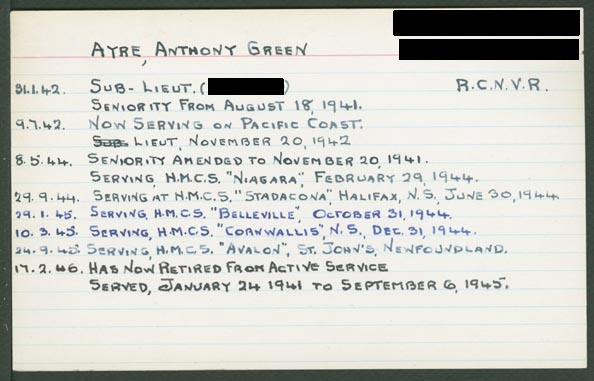 AYRE, ANTHONY GREEN
31.1.42. SUB-LIEUT. ( ) R.C.N.V.R.
SENIORITY FROM AUGUST 18, 1941.
9.7.42. NOW SERVING ON PACIFIC COAST.
SUB- LIEUT, NOVEMBER 20, 1942
8.5.44. SENIORITY AMENDED TO NOVEMBER 20, 1941.
SERVING, H.M.C.S. "NIAGARA", FEBRUARY 29, 1944.
29.9.44. SERVING AT H.M.C.S. "STADACONA", HALIFAX, N.S. JUNE 30, 1944
29.1.45. SERVING, H.M.C.S. "BELLEVILLE", OCTOBER 31, 1944.
10.3.45. SERVING, H.M.C.S. "CORNWALLIS", N.S., DEC. 31, 1944.
24.9.45 SERVING, H.M.C.S. "AVALON", ST. JOHN'S, NEWFOUNDLAND.
17.2.46. HAS NOW RETIRED FROM ACTIVE SERVICE
SERVED, JANUARY 24 1941 TO SEPTEMBER 6, 1945.